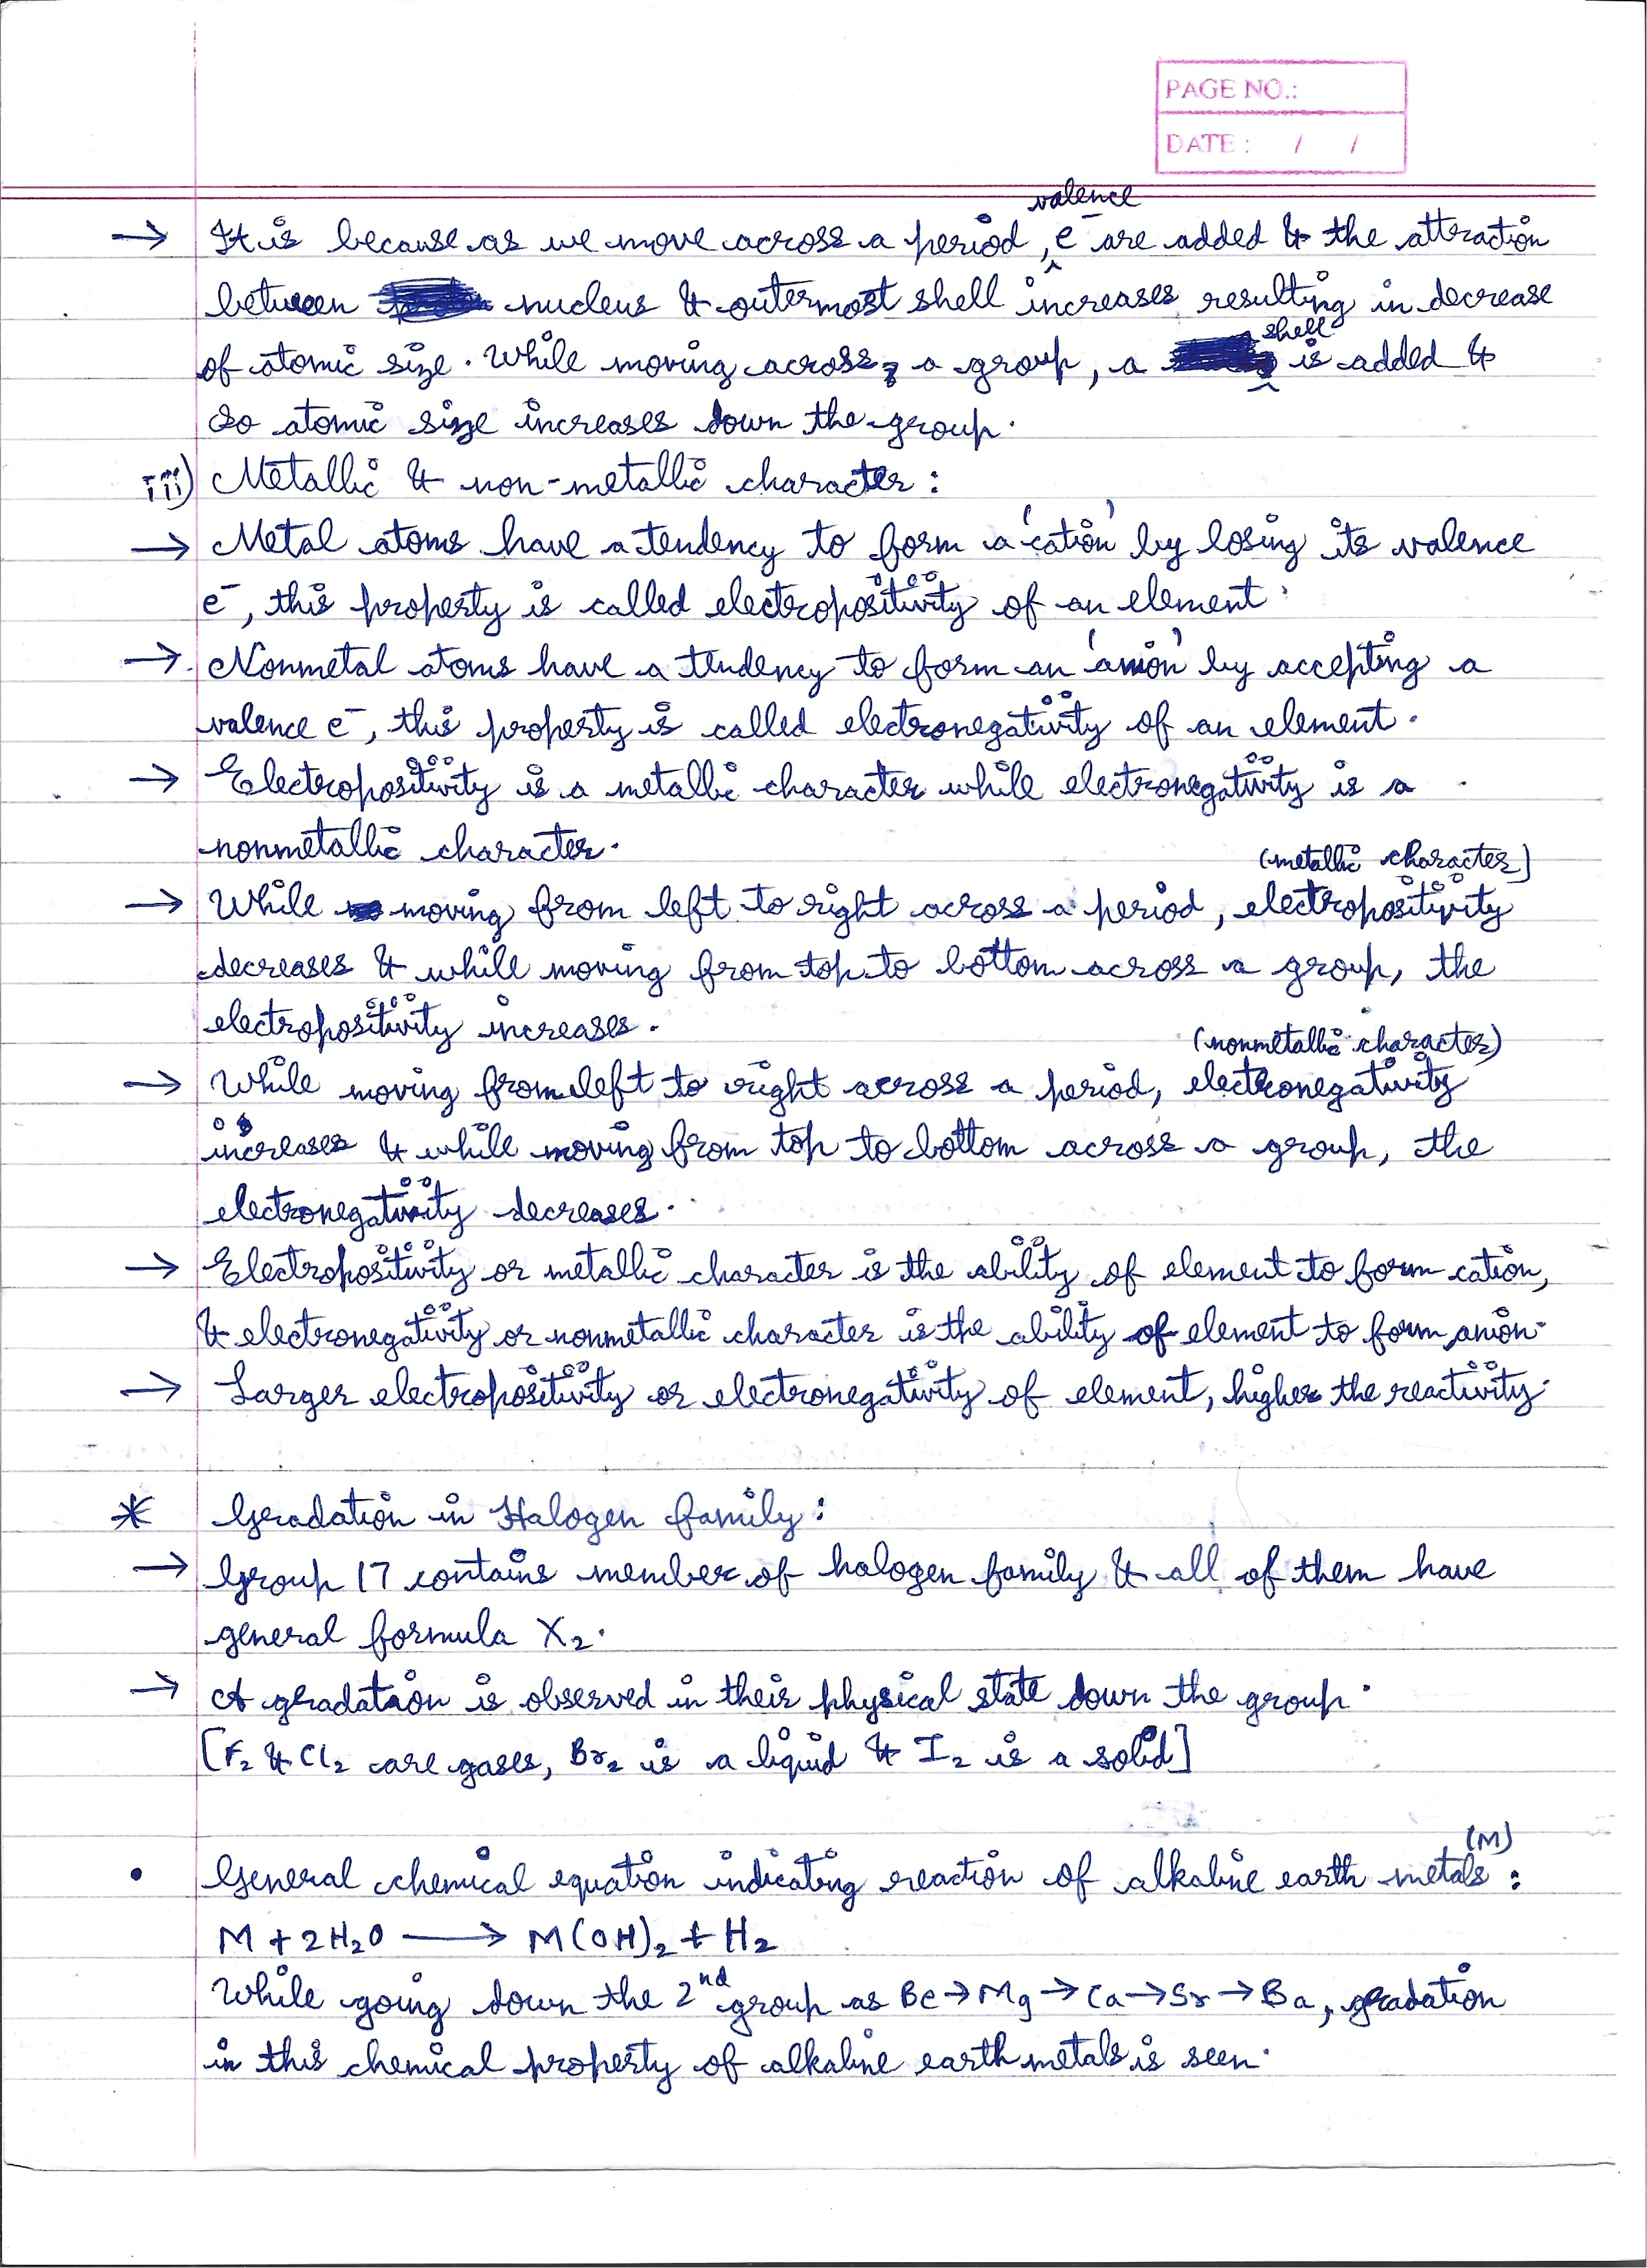 PAGE NO.:
DATE : / /
→ It is because as we move across a period, valence e⁻ are added & the attraction
between nucleus & outermost shell increases resulting in decrease
of atomic size. While moving across a group, a shell is added &
so atomic size increases down the group.
iii) Metallic & non-metallic character :
→ Metal atoms have a tendency to form a 'cation' by losing its valence
e⁻, this property is called electropositivity of an element.
→ Nonmetal atoms have a tendency to form an 'anion' by accepting a
valence e⁻, this property is called electronegativity of an element.
→ Electropositivity is a metallic character while electronegativity is a
nonmetallic character.
(metallic character)
→ While moving from left to right across a period, electropositivity
decreases & while moving from top to bottom across a group, the
electropositivity increases.
(nonmetallic character)
→ While moving from left to right across a period, electronegativity
increases & while moving from top to bottom across a group, the
electronegativity decreases.
→ Electropositivity or metallic character is the ability of element to form cation,
& electronegativity or nonmetallic character is the ability of element to form anion.
→ Larger electropositivity or electronegativity of element, higher the reactivity.
* Gradation in Halogen family :
→ Group 17 contains member of halogen family & all of them have
general formula X₂.
→ A gradation is observed in their physical state down the group.
[F₂ & Cl₂ are gases, Br₂ is a liquid & I₂ is a solid]
• General chemical equation indicating reaction of alkaline earth metals (M) :
M + 2H₂O → M(OH)₂ + H₂
While going down the 2nd group as Be → Mg → Ca → Sr → Ba, gradation
in this chemical property of alkaline earth metals is seen.